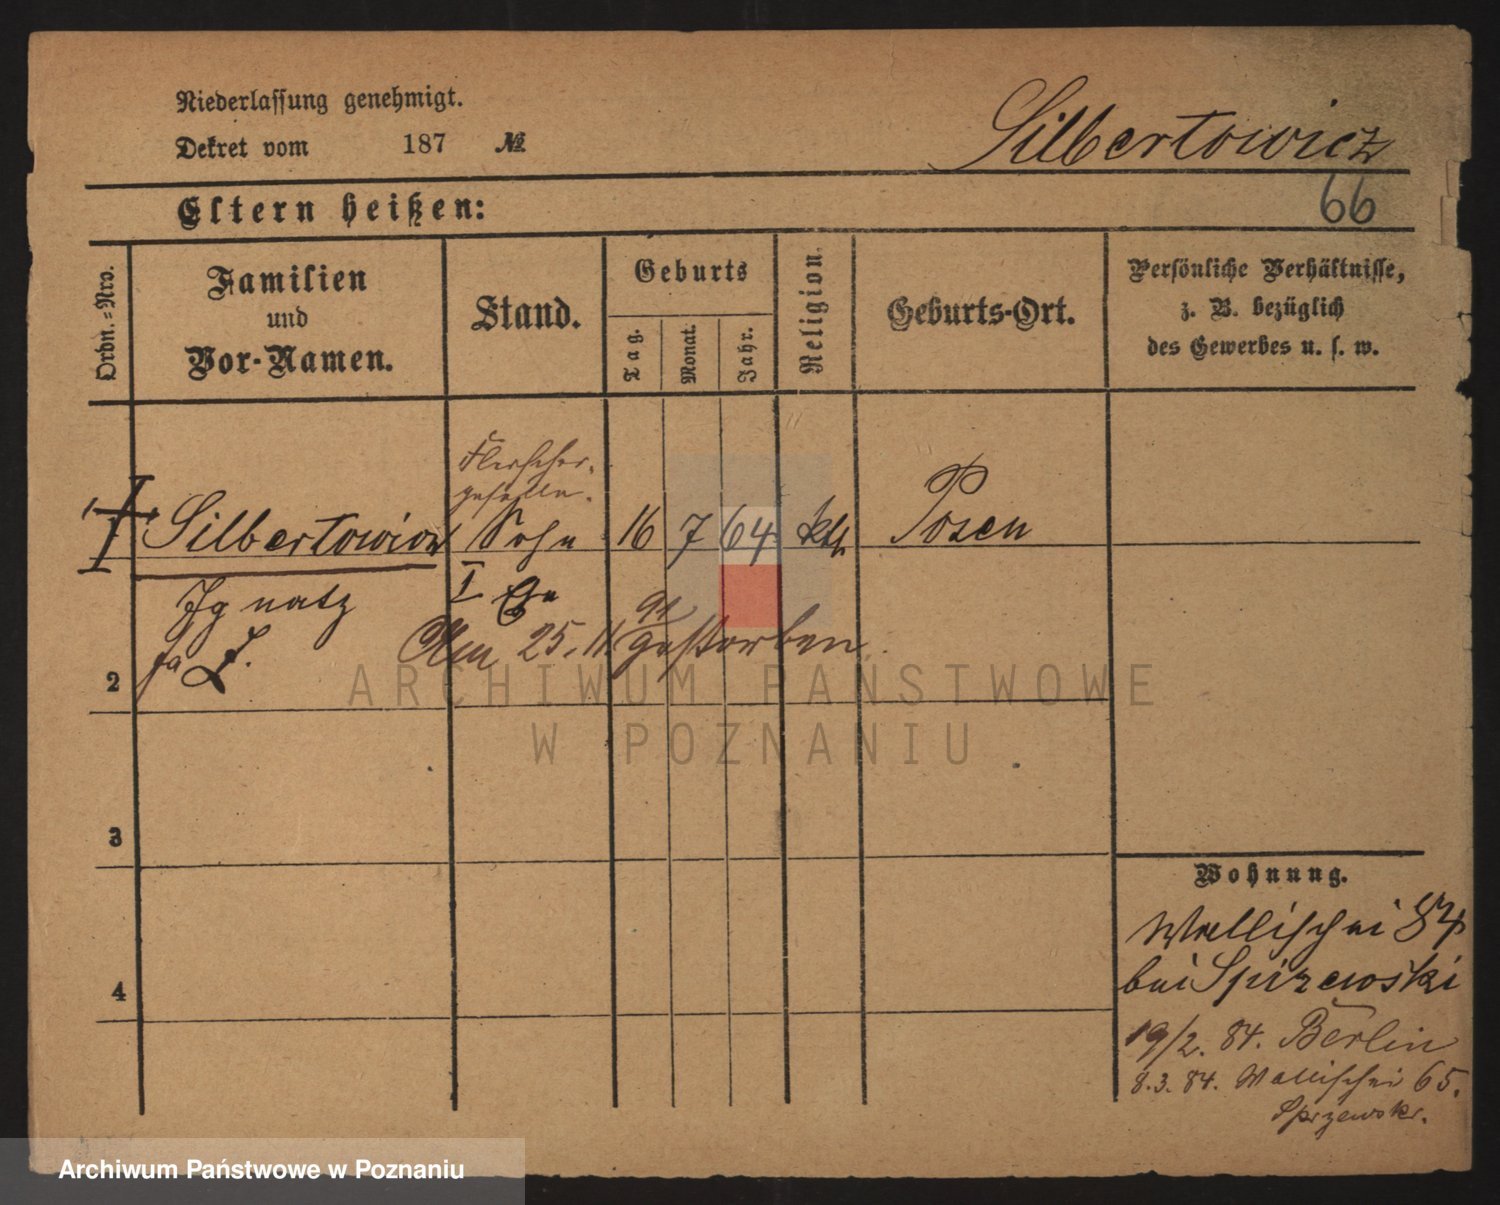 Niederlassung genehmigt.
Dekret vom 187 №
Silbertowicz
66
Eltern heißen:
Ordn.-Nro.
Familien
und
Vor-Namen.
Stand.
Geburts
Tag.
Monat.
Jahr.
Religion.
Geburts-Ort.
Persönliche Verhältnisse,
z. B. bezüglich
des Gewerbes u. s. w.
Fleischer-
geselle.
Silbertowicz Sohn 16 7 64 kth Posen
Ignatz I Ehe
Am 25. 11. 91 gestorben
2
ARCHIWUM PAŃSTWOWE
W POZNANIU
3
4
Wohnung.
Wallischei 84
bei Spirzewski
19/2. 84. Berlin
8.3.84. Wallischei 65.
Sprzewski.
Archiwum Państwowe w Poznaniu